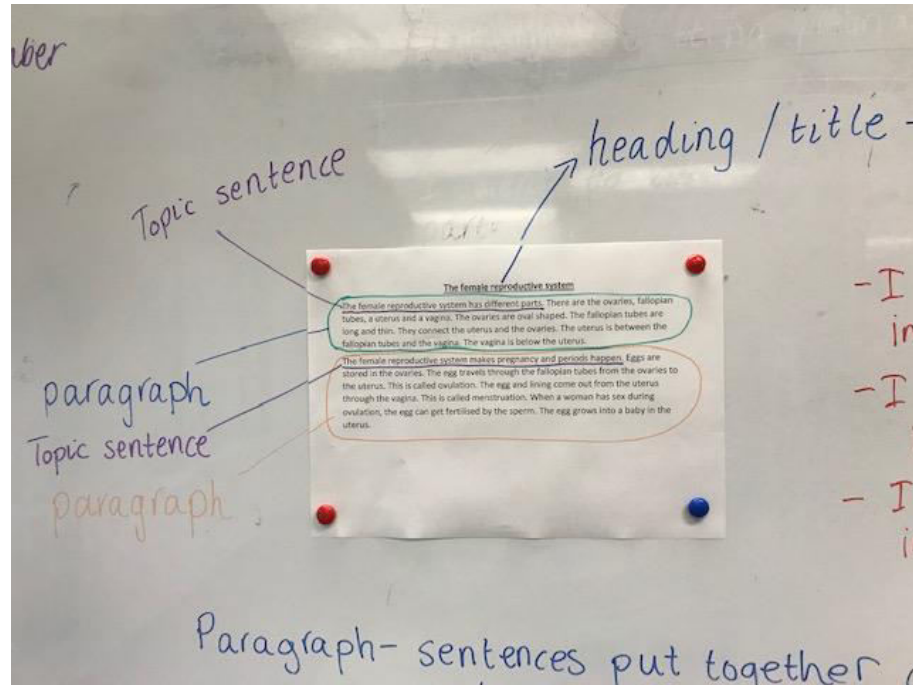 heading / title -
Topic sentence
The female reproductive system
The female reproductive system has different parts. There are the ovaries, fallopian
tubes, a uterus and a vagina. The ovaries are oval shaped. The fallopian tubes are
long and thin. They connect the uterus and the ovaries. The uterus is between the
fallopian tubes and the vagina. The vagina is below the uterus.
The female reproductive system makes pregnancy and periods happen. Eggs are
stored in the ovaries. The egg travels through the fallopian tubes from the ovaries to
the uterus. This is called ovulation. The egg and lining come out from the uterus
through the vagina. This is called menstruation. When a woman has sex during
ovulation, the egg can get fertilised by the sperm. The egg grows into a baby in the
uterus.
paragraph
Topic sentence
paragraph
- I
- I
- I
Paragraph- sentences put together